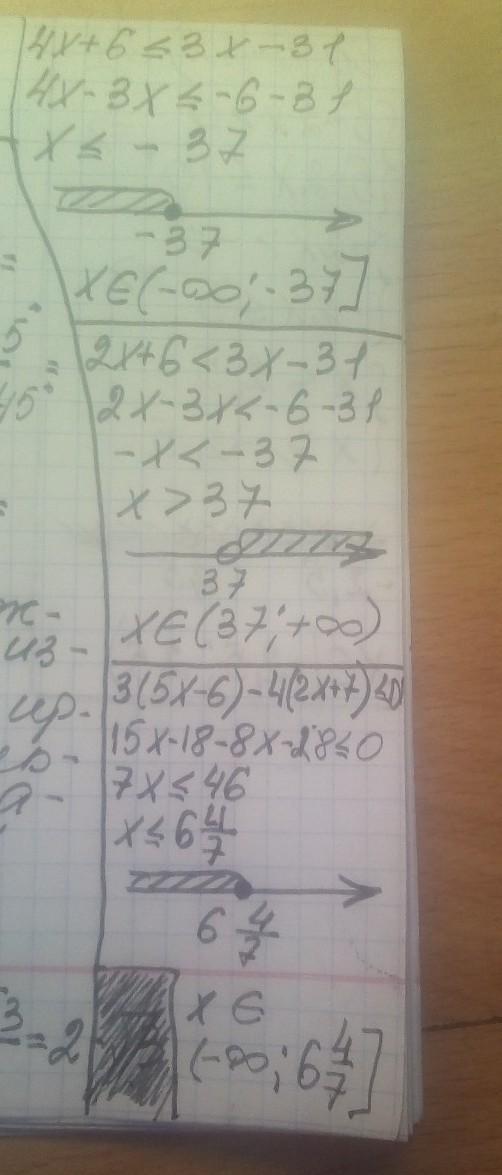 4x+6≤3x-31
4x-3x≤-6-31
x≤-37
-37
x∈(-∞;-37]
2x+6<3x-31
2x-3x<-6-31
-x<-37
x>37
37
x∈(37;+∞)
3(5x-6)-4(2x+7)≤0
15x-18-8x-28≤0
7x≤46
x≤6 4/7
6 4/7
x∈
(-∞;6 4/7]
=
5°
=
45°
ж-
из-
ир-
а-
3
=2